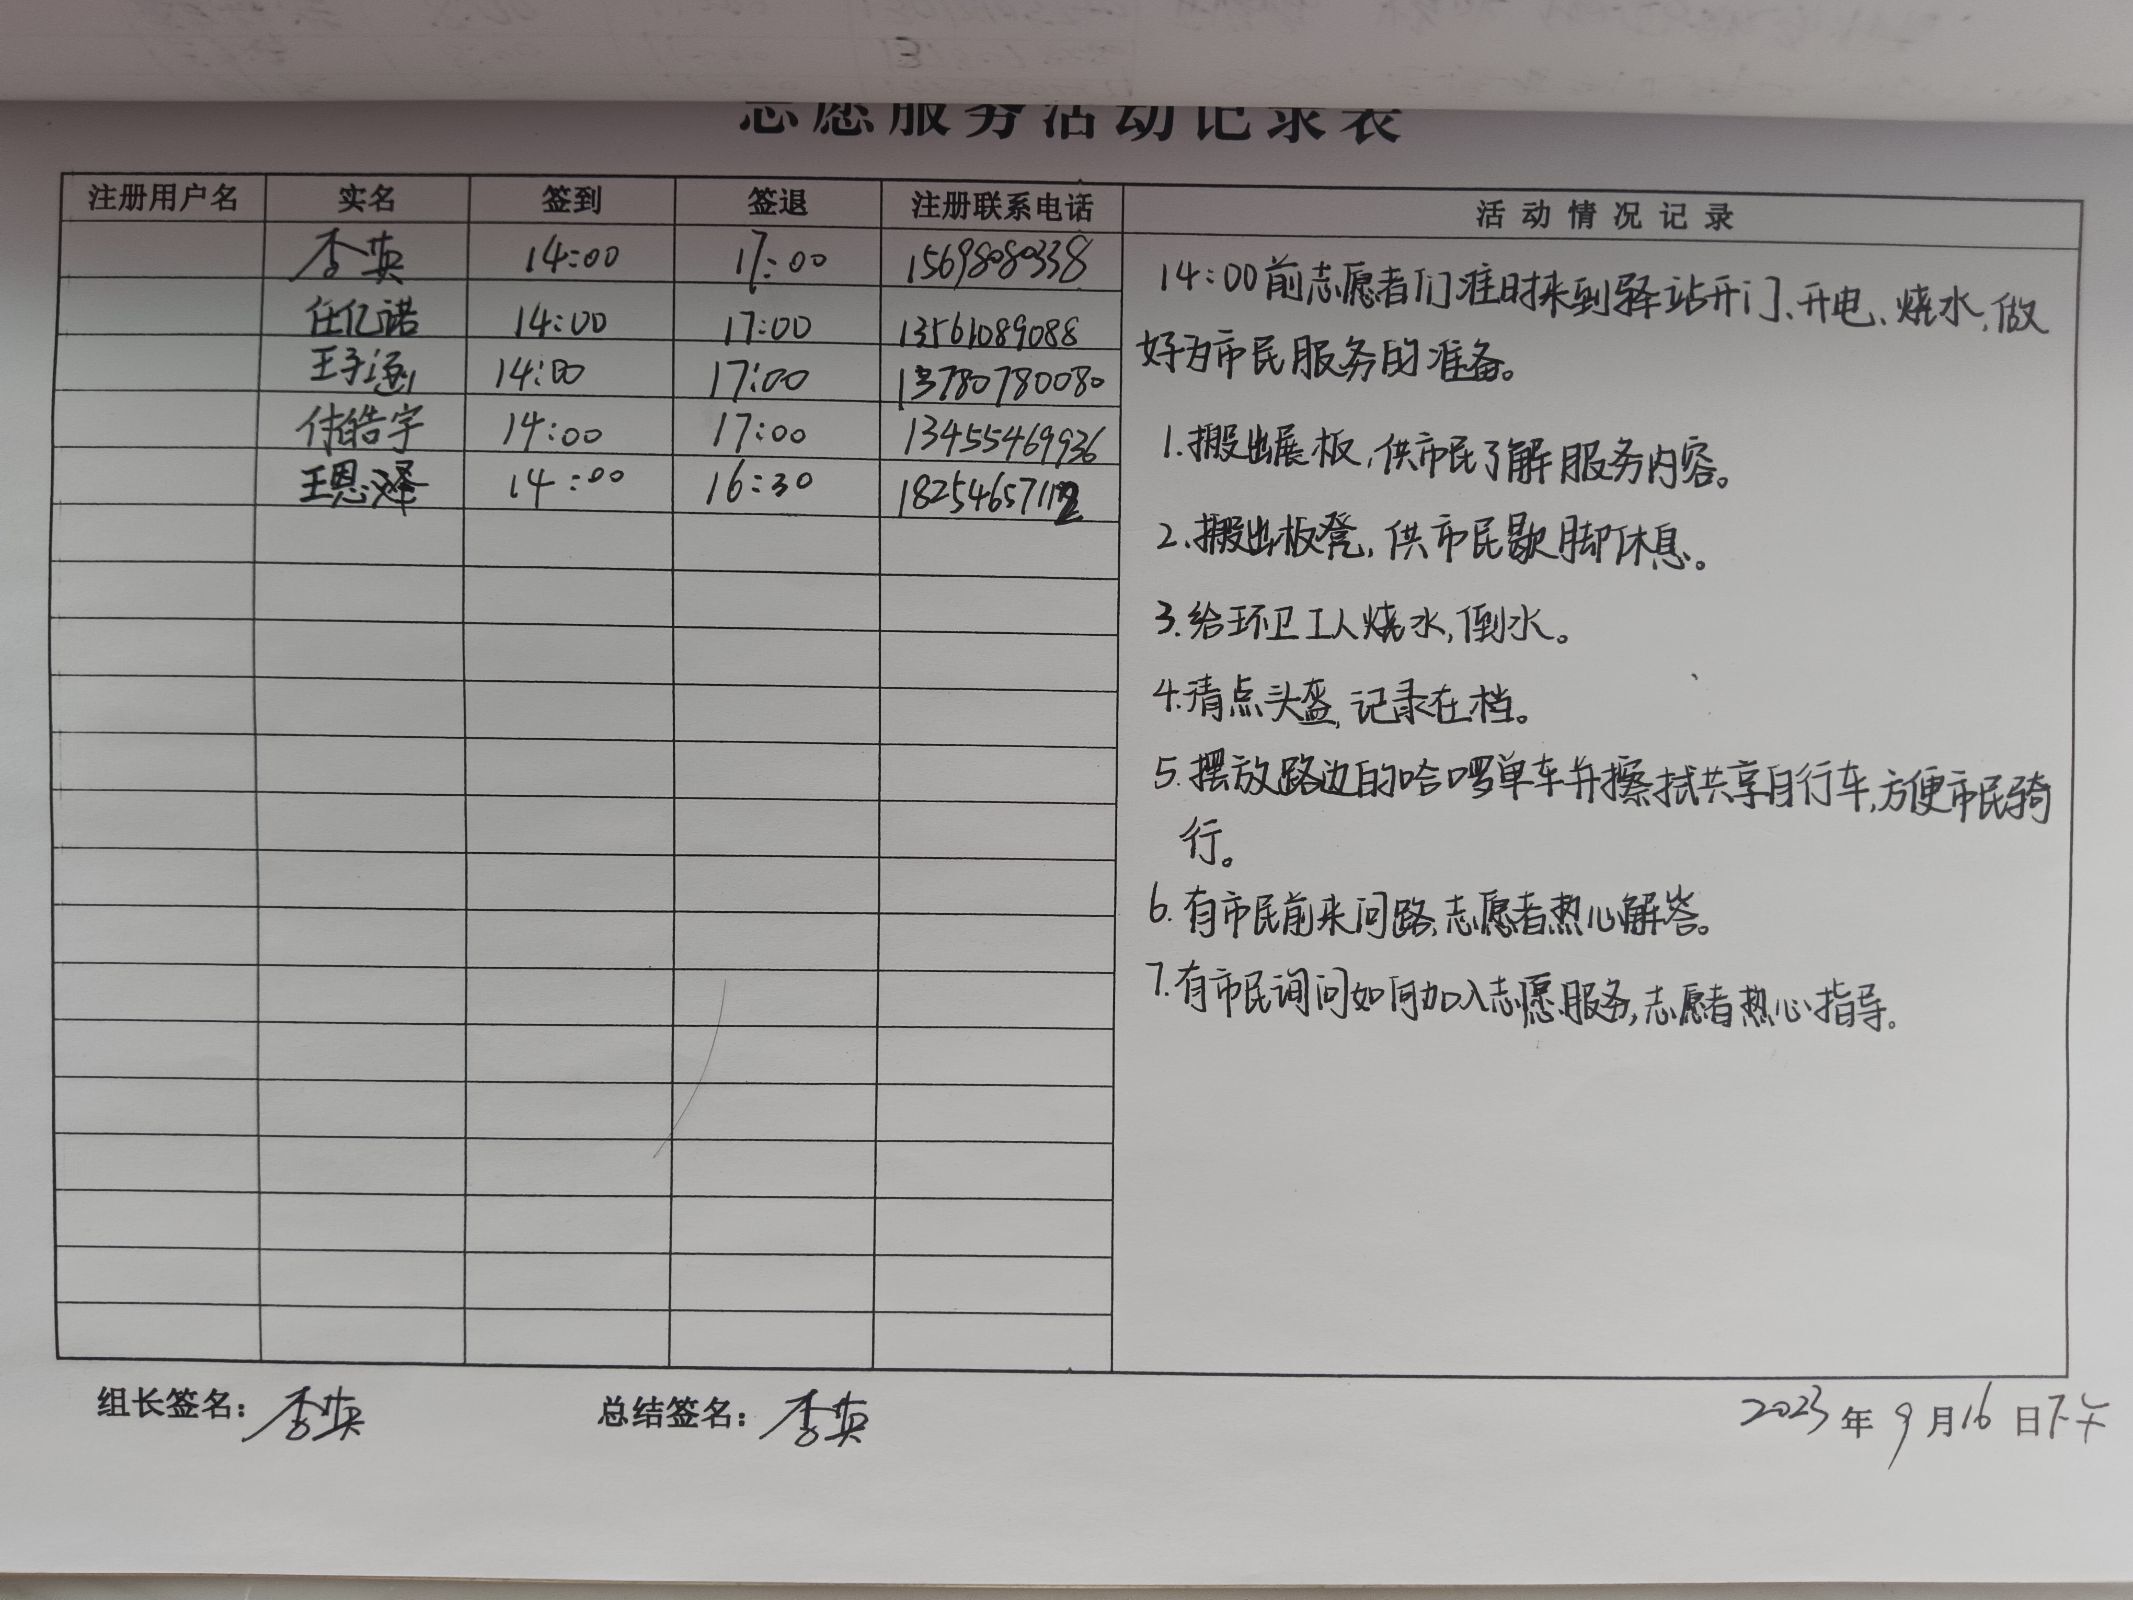 志愿服务活动记录表
注册用户名 实名 签到 签退 注册联系电话 活动情况记录
李英 14:00 17:00 15698080338
任亿诺 14:00 17:00 13561089088
王子 14:00 17:00 13780780080
付皓宇 14:00 17:00 13455469936
王恩泽 14:00 16:30 18254657112
14:00前志愿者们准时来到驿站开门、开电、烧水,做
好为市民服务的准备。
1.搬出展板,供市民了解服务内容。
2.搬出板凳,供市民歇脚休息。
3.给环卫工人烧水,倒水。
4.清点头盔,记录在档。
5.摆放路边的哈啰单车并擦拭共享自行车,方便市民骑
行。
6.有市民前来问路,志愿者热心解答。
7.有市民询问如何加入志愿服务,志愿者热心指导。
组长签名:李英 总结签名:李英 2023年9月16日下午